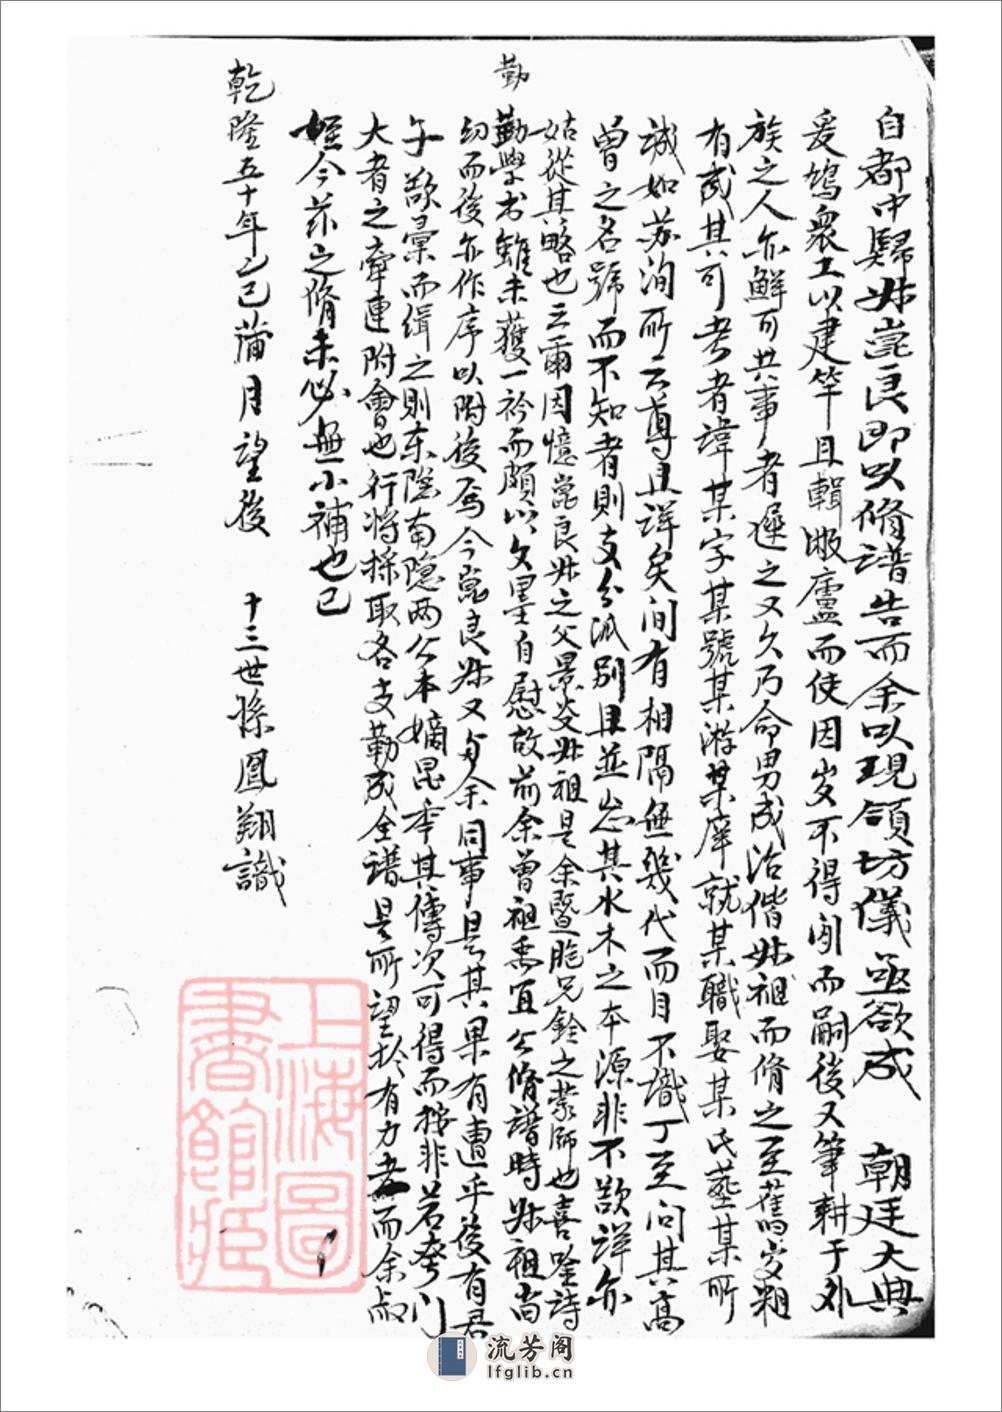 自都中歸叔崑良即以脩譜告而余以現領坊儀亟欲成 朝廷大典
爰鳩衆工以建竿且輯敝廬而使因歲不得闲而嗣後又筆耕于外
族之人亦鮮可共事者遲之又久乃命男成治偕叔祖而脩之至舊歲朔
有或其可考者諱某字某號某游某庠就某職娶某氏塟某所
誠如苏洵所云尊且详矣间有相隔無幾代而目不識丁至问其高
曾之名號而不知者則支分派別且並忘其水木之本源非不欲詳亦
姑從其略也云爾因憶崑良叔之父景炎叔祖是余暨胞兄銓之蒙師也喜吟詩
勤學书雖未獲一衿而頗以文墨自慰故前余曾祖禹宜公脩譜時叔祖尚
幼而後亦作序以附後焉今崑良叔又与余同事是其果有遭乎後有君
子欲彙而缉之則东隐南隐两公本嫡昆季其傳次可得而按非若夸门
大者之牽連附會也行将採取各支勒成全谱是所望扵有力者而余叔
姪今茲之脩未必無小補也已
乾隆五十年乙巳蒲月望後 十三世孫鳳翔識
勤
上海圖
書館藏
流芳阁
lfglib.cn